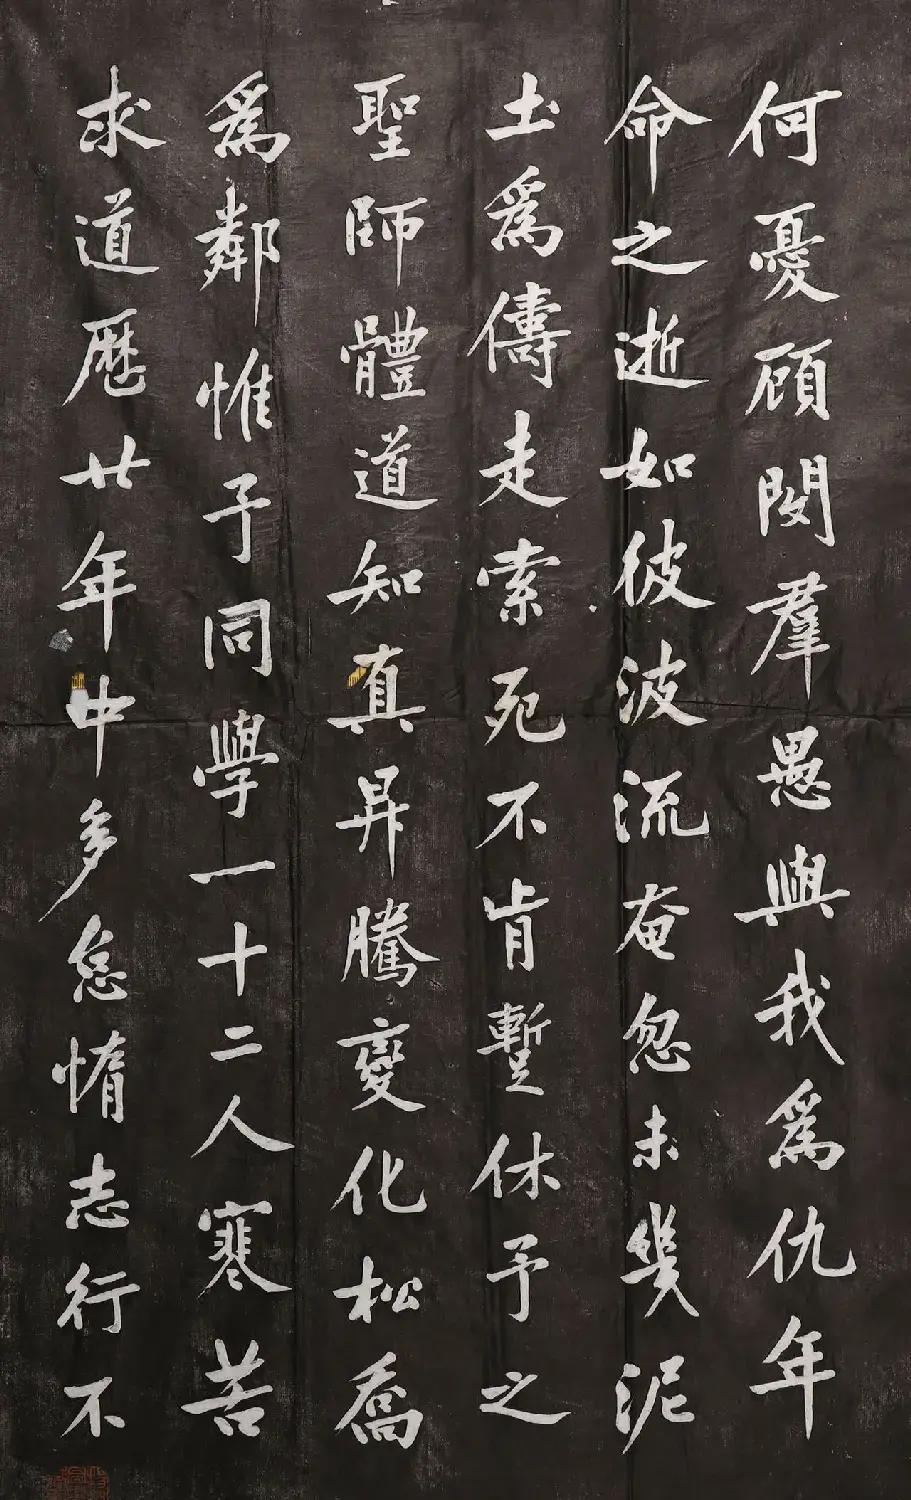 何憂顧閔羣愚與我為仇年
命之逝如彼波流奄忽未幾泥
土為儔走索死不肯暫休予之
聖師體道知真昇騰變化松喬
為鄰惟予同學一十二人寒苦
求道歷廿年中多怠惰志行不